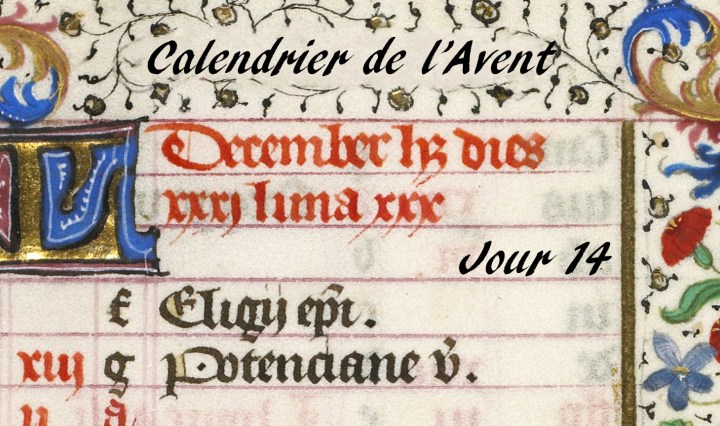 Calendrier de l'Avent
KL
December hȝ dies
xxxj luna xxx
Jour 14
f Eligij ep̃i.
xiij g Potenciane v̄.
ij a